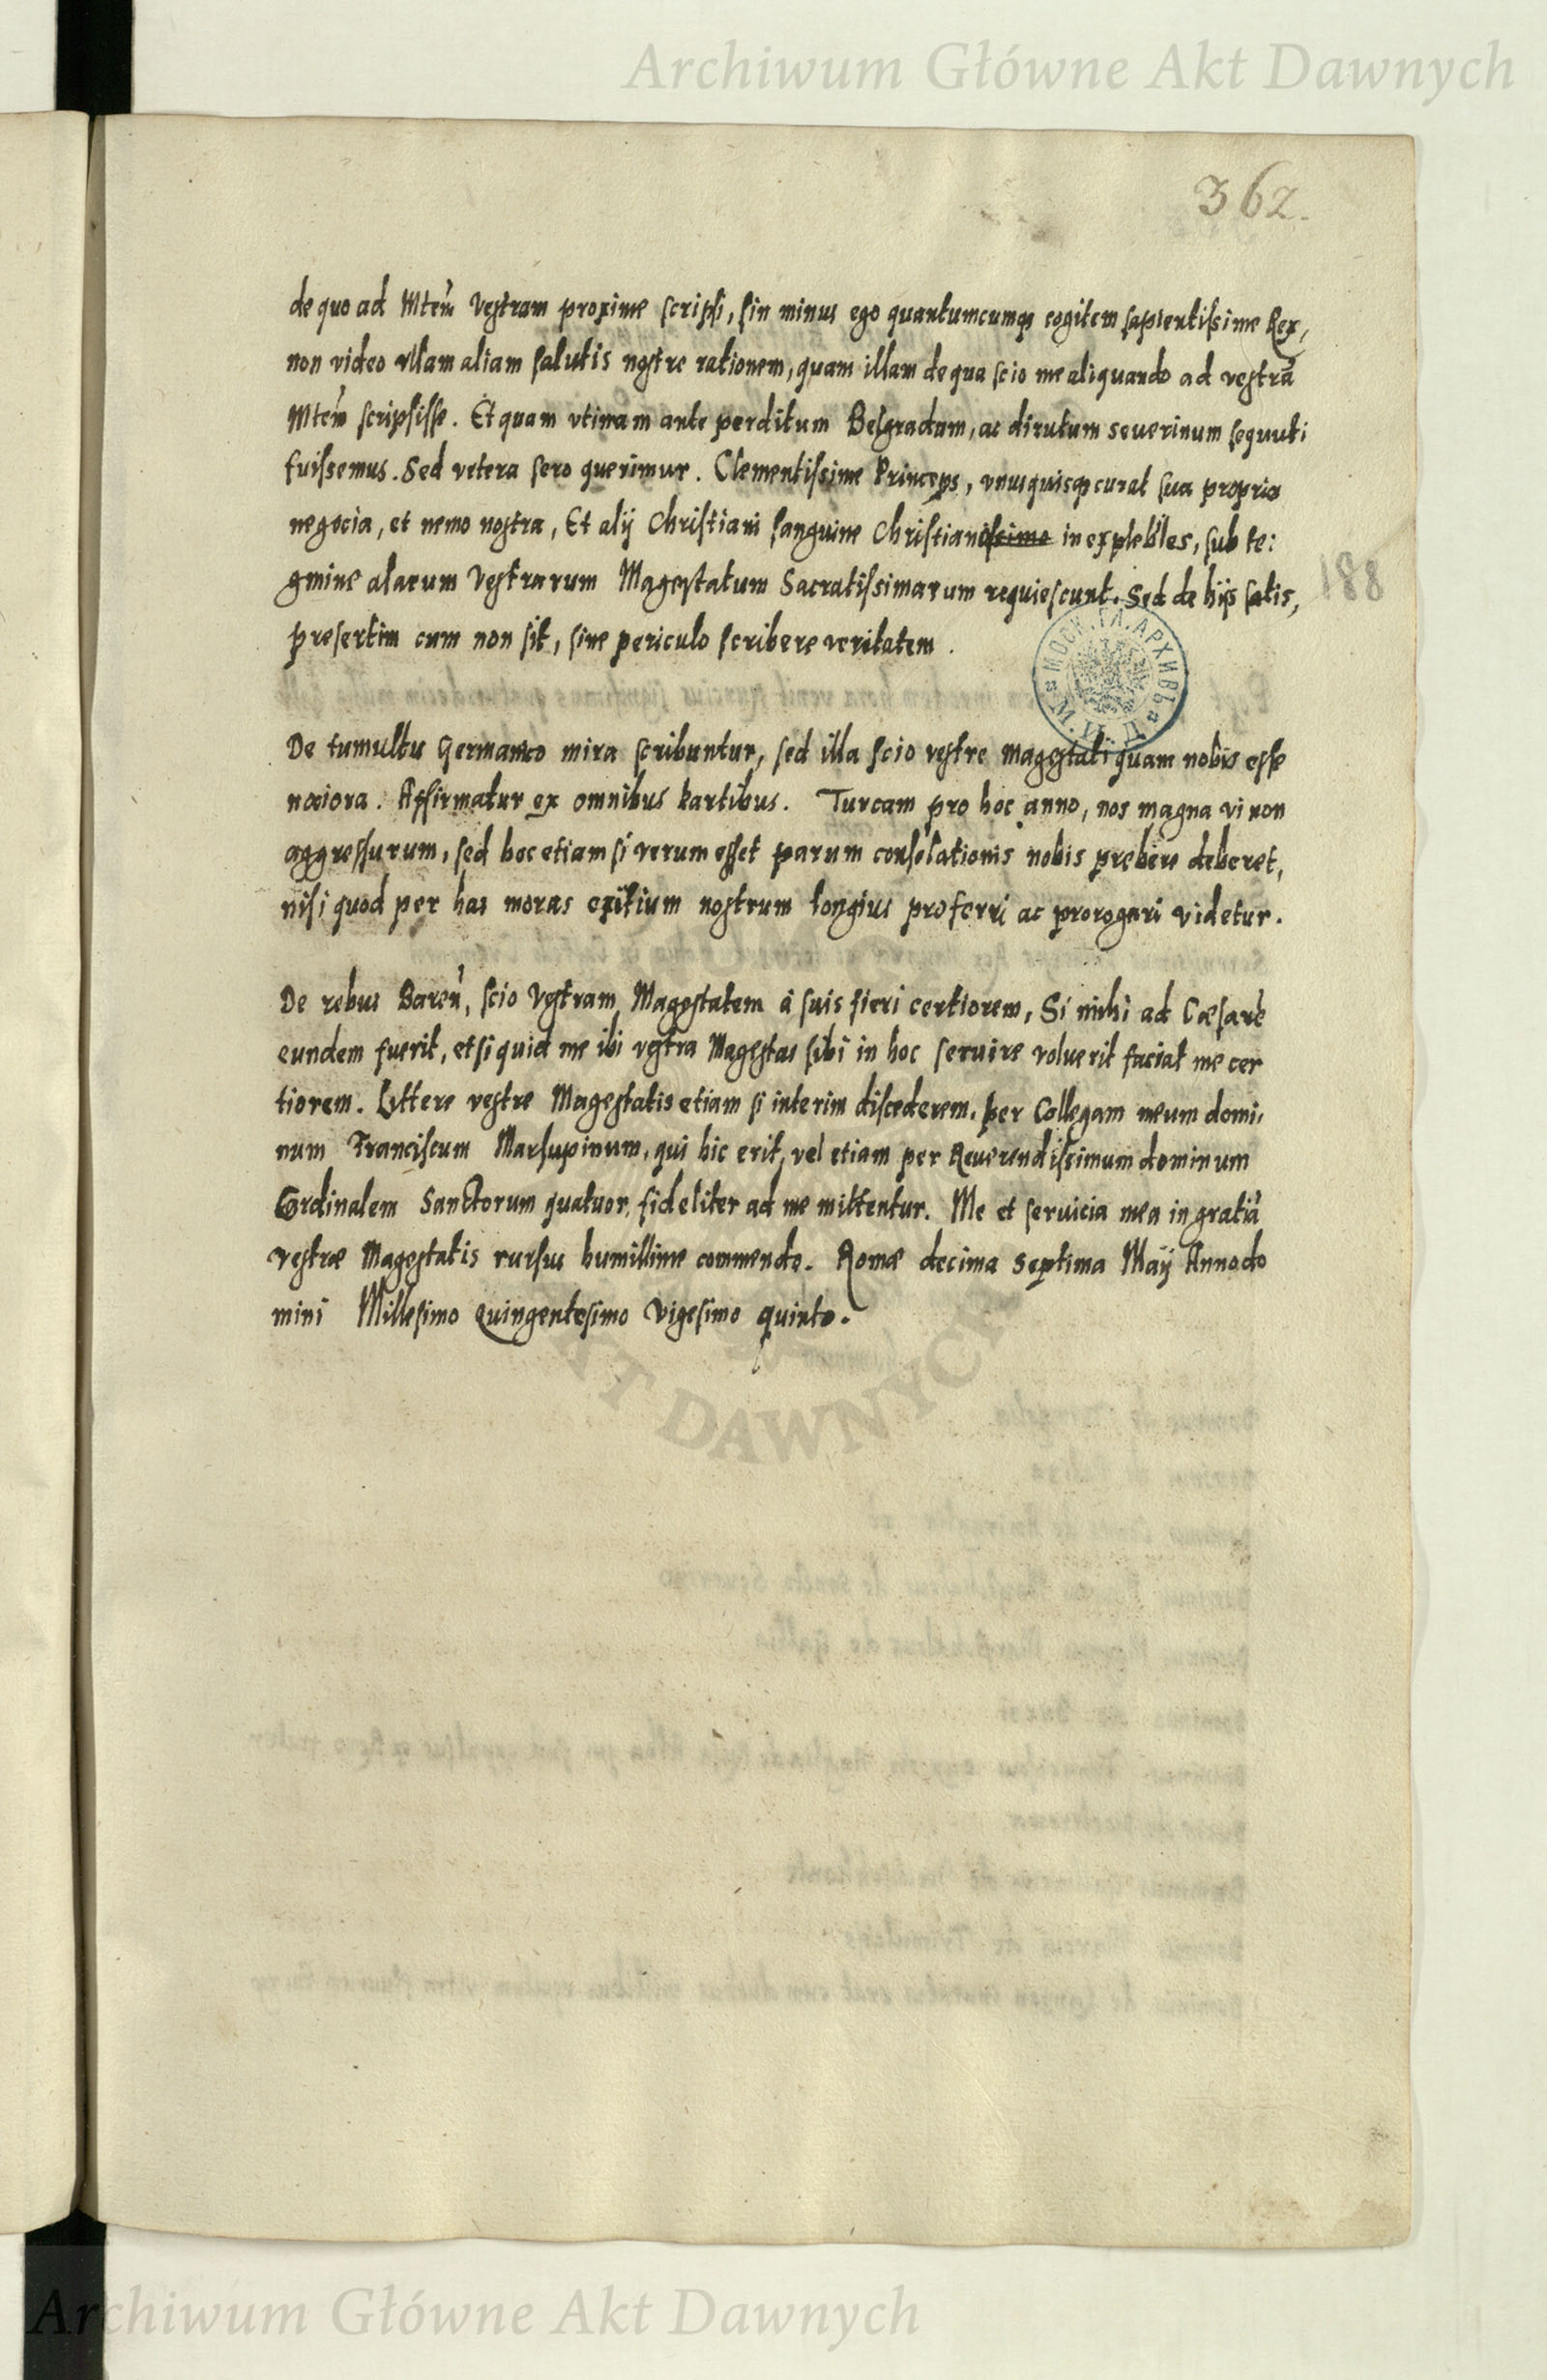 Archiwum Główne Akt Dawnych
362.
de quo ad Mtem̃ Vestram proxime scripsi, sin minus ego quantumcumq; cogitem sapientissime Rex,
non video vllam aliam salutis nostre rationem, quam illam de qua scio me aliquando ad vestrã
Mtem̃ scripsisse. Et quam vtinam ante perditum Belgradum, ac dirutum seuerinum sequuti
fuissemus. Sed vetera sero querimur. Clementissime Princeps, vnusquisq; curat sua propria
negocia, et nemo nostra, Et alij Christiani sanguine Christiano inexplebiles, sub te:
gmine alarum Vestrarum Magestatum Sacratissimarum requiescunt. Sed de hijs satis,
presertim cum non sit, sine periculo scribere veritatem.
188
МОСК. ГЛ. АРХИВЪ М.И.Д.
De tumultu Germanico mira scribuntur, sed illa scio vestre magestati quam nobis esse
nociora. Affirmatur ex omnibus partibus. Turcam pro hoc anno, nos magna vi non
aggressurum, sed hoc etiam si verum esset parum consolationis nobis prebere deberet,
nisi quod per has moras exitium nostrum longius proferri ac prorogari videtur.
De rebus Baren̄, scio Vestram Magestatem à suis fieri certiorem, Si mihi ad Cæsarẽ
eundem fuerit, et si quid me ibi vestra Magestas sibi in hoc seruire voluerit faciat me cer
tiorem. Littere vestre Magestatis etiam si interim discederem. per Collegam meum domi,
num Franciscum Marsupinum, qui hic erit, vel etiam per Reuerendissimum dominum
Cordinalem Sanctorum quatuor, fideliter ad me mittentur. Me et seruicia mea in gratiã
vestræ Magestatis rursus humillime commendo. Romæ decima septima Maij Anno do
mini Millesimo quingentesimo Vigesimo quinto.
AKT DAWNYCH
Archiwum Główne Akt Dawnych